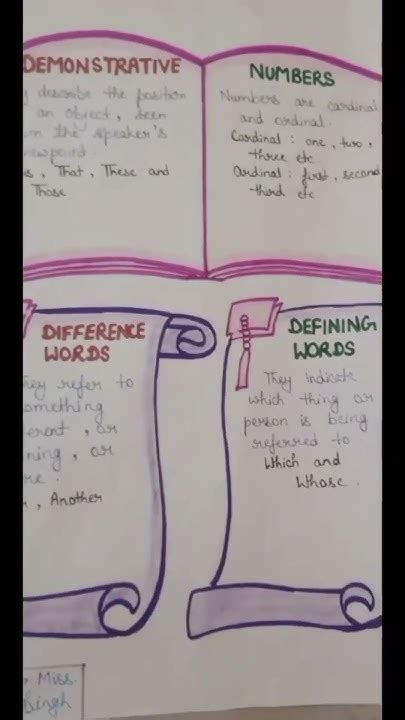 DEMONSTRATIVE
describe the position
an object, seen
the speaker's
That, These and
Those
NUMBERS
Numbers are cardinal
and ordinal.
Cardinal : one, two,
three etc.
Ordinal : first, second
third etc
DIFFERENCE
WORDS
refer to
or
or
, Another
DEFINING
WORDS
They indicate
which thing or
person is being
referred to
Which and
Whose.
Miss.
Singh